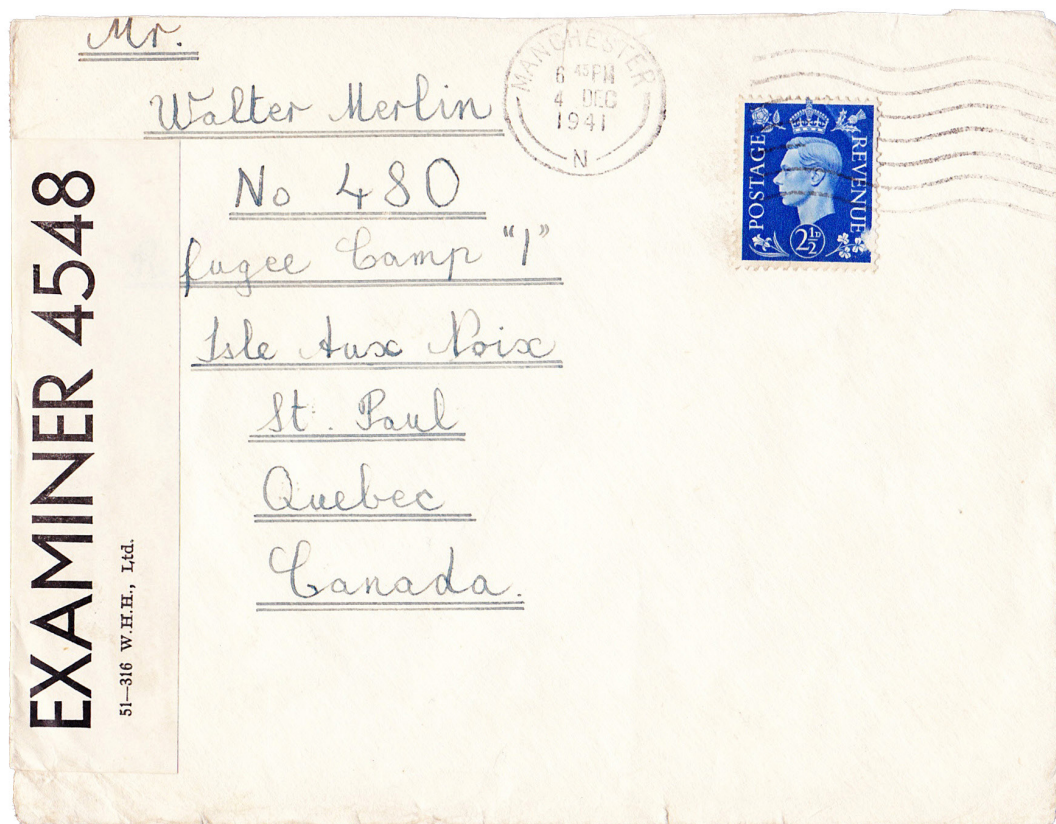 Mr.
Walter Merlin
No 480
fugee Camp "I"
Isle Aux Noix
St. Paul
Quebec
Canada.
MANCHESTER
6 45 PM
4 DEC
1941
N
POSTAGE
REVENUE
2½D
EXAMINER 4548
51—316 W.H.H., Ltd.